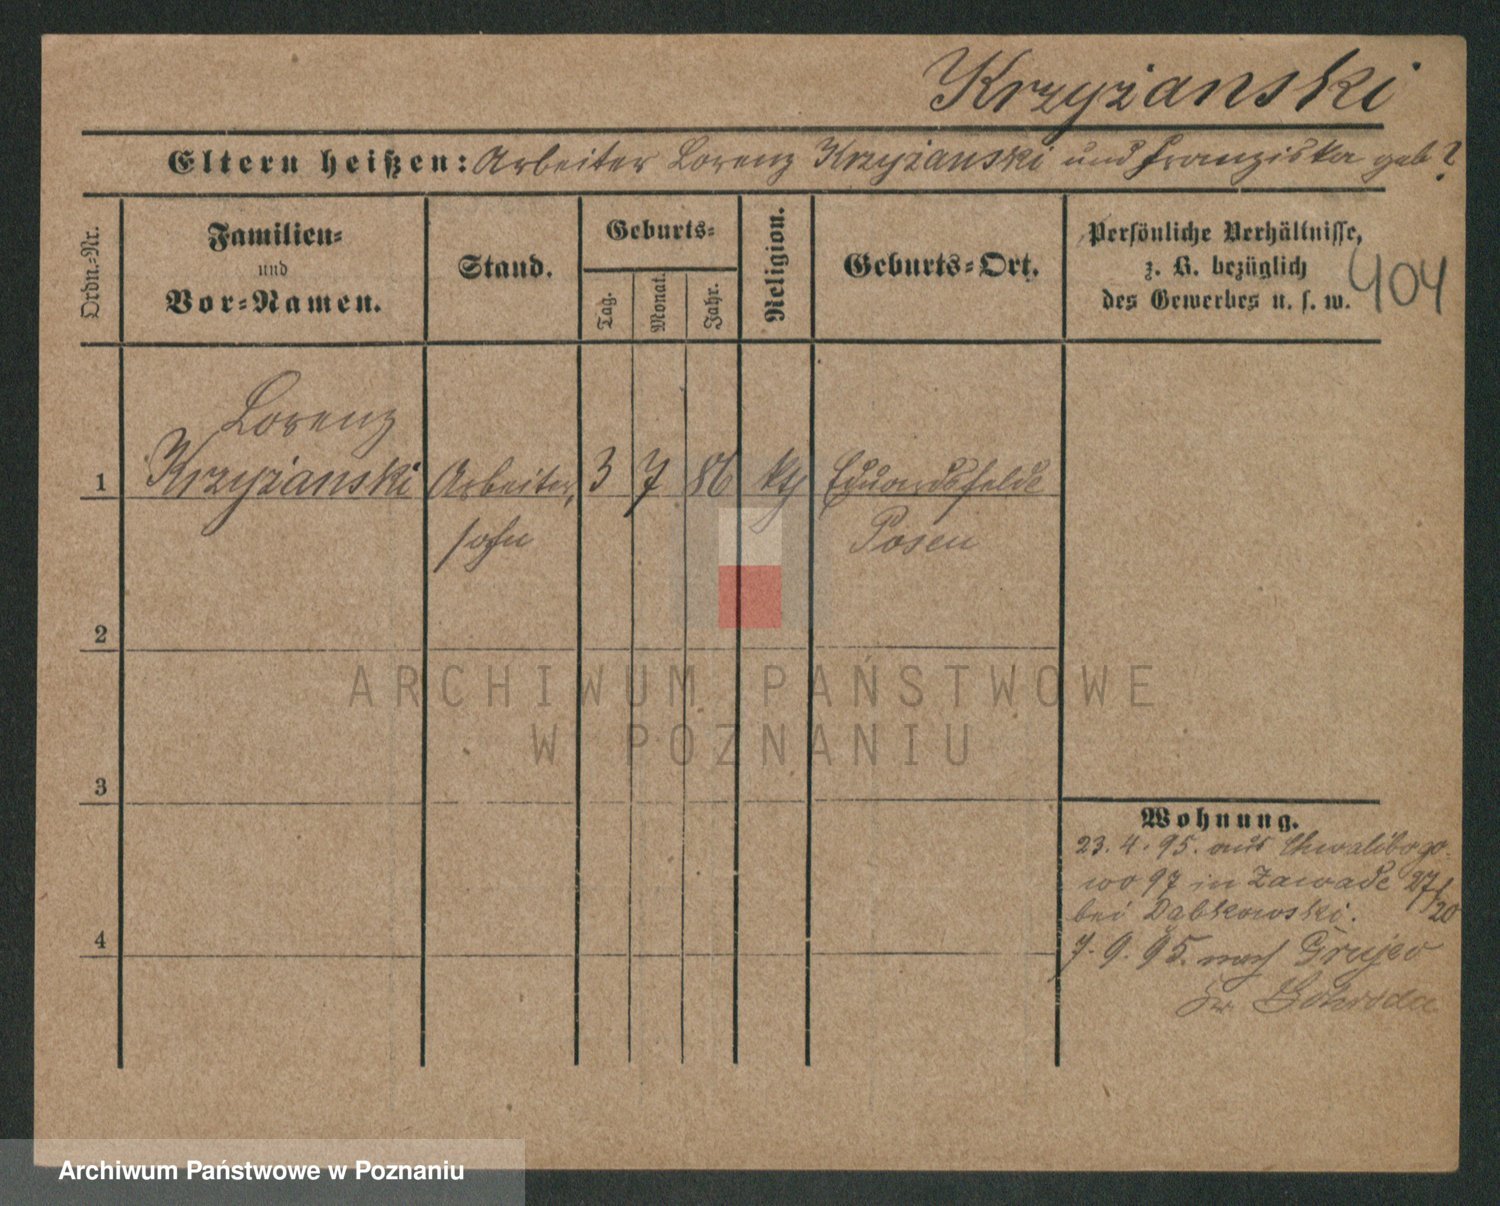 Krzyżanski
Eltern heißen: Arbeiter Lorenz Krzyżanski und Franziska geb ?
Ordn.-Nr.
Familien-
und
Vor-Namen.
Stand.
Geburts-
Tag.
Monat.
Jahr.
Religion.
Geburts-Ort.
Persönliche Verhältnisse,
z. B. bezüglich
des Gewerbes u. s. w.
404
Lorenz
1 Krzyżanski Arbeiter 3 7 86 kth Eduardsfelde
sohn Posen
2
ARCHIWUM PAŃSTWOWE
W POZNANIU
3
Wohnung.
23. 4. 95. aus Chwalibogo-
wo 97 in Zawade 27/20
bei Dąbkowski.
4
7. 9. 95. nach Grujec
Kr. Schroda
Archiwum Państwowe w Poznaniu